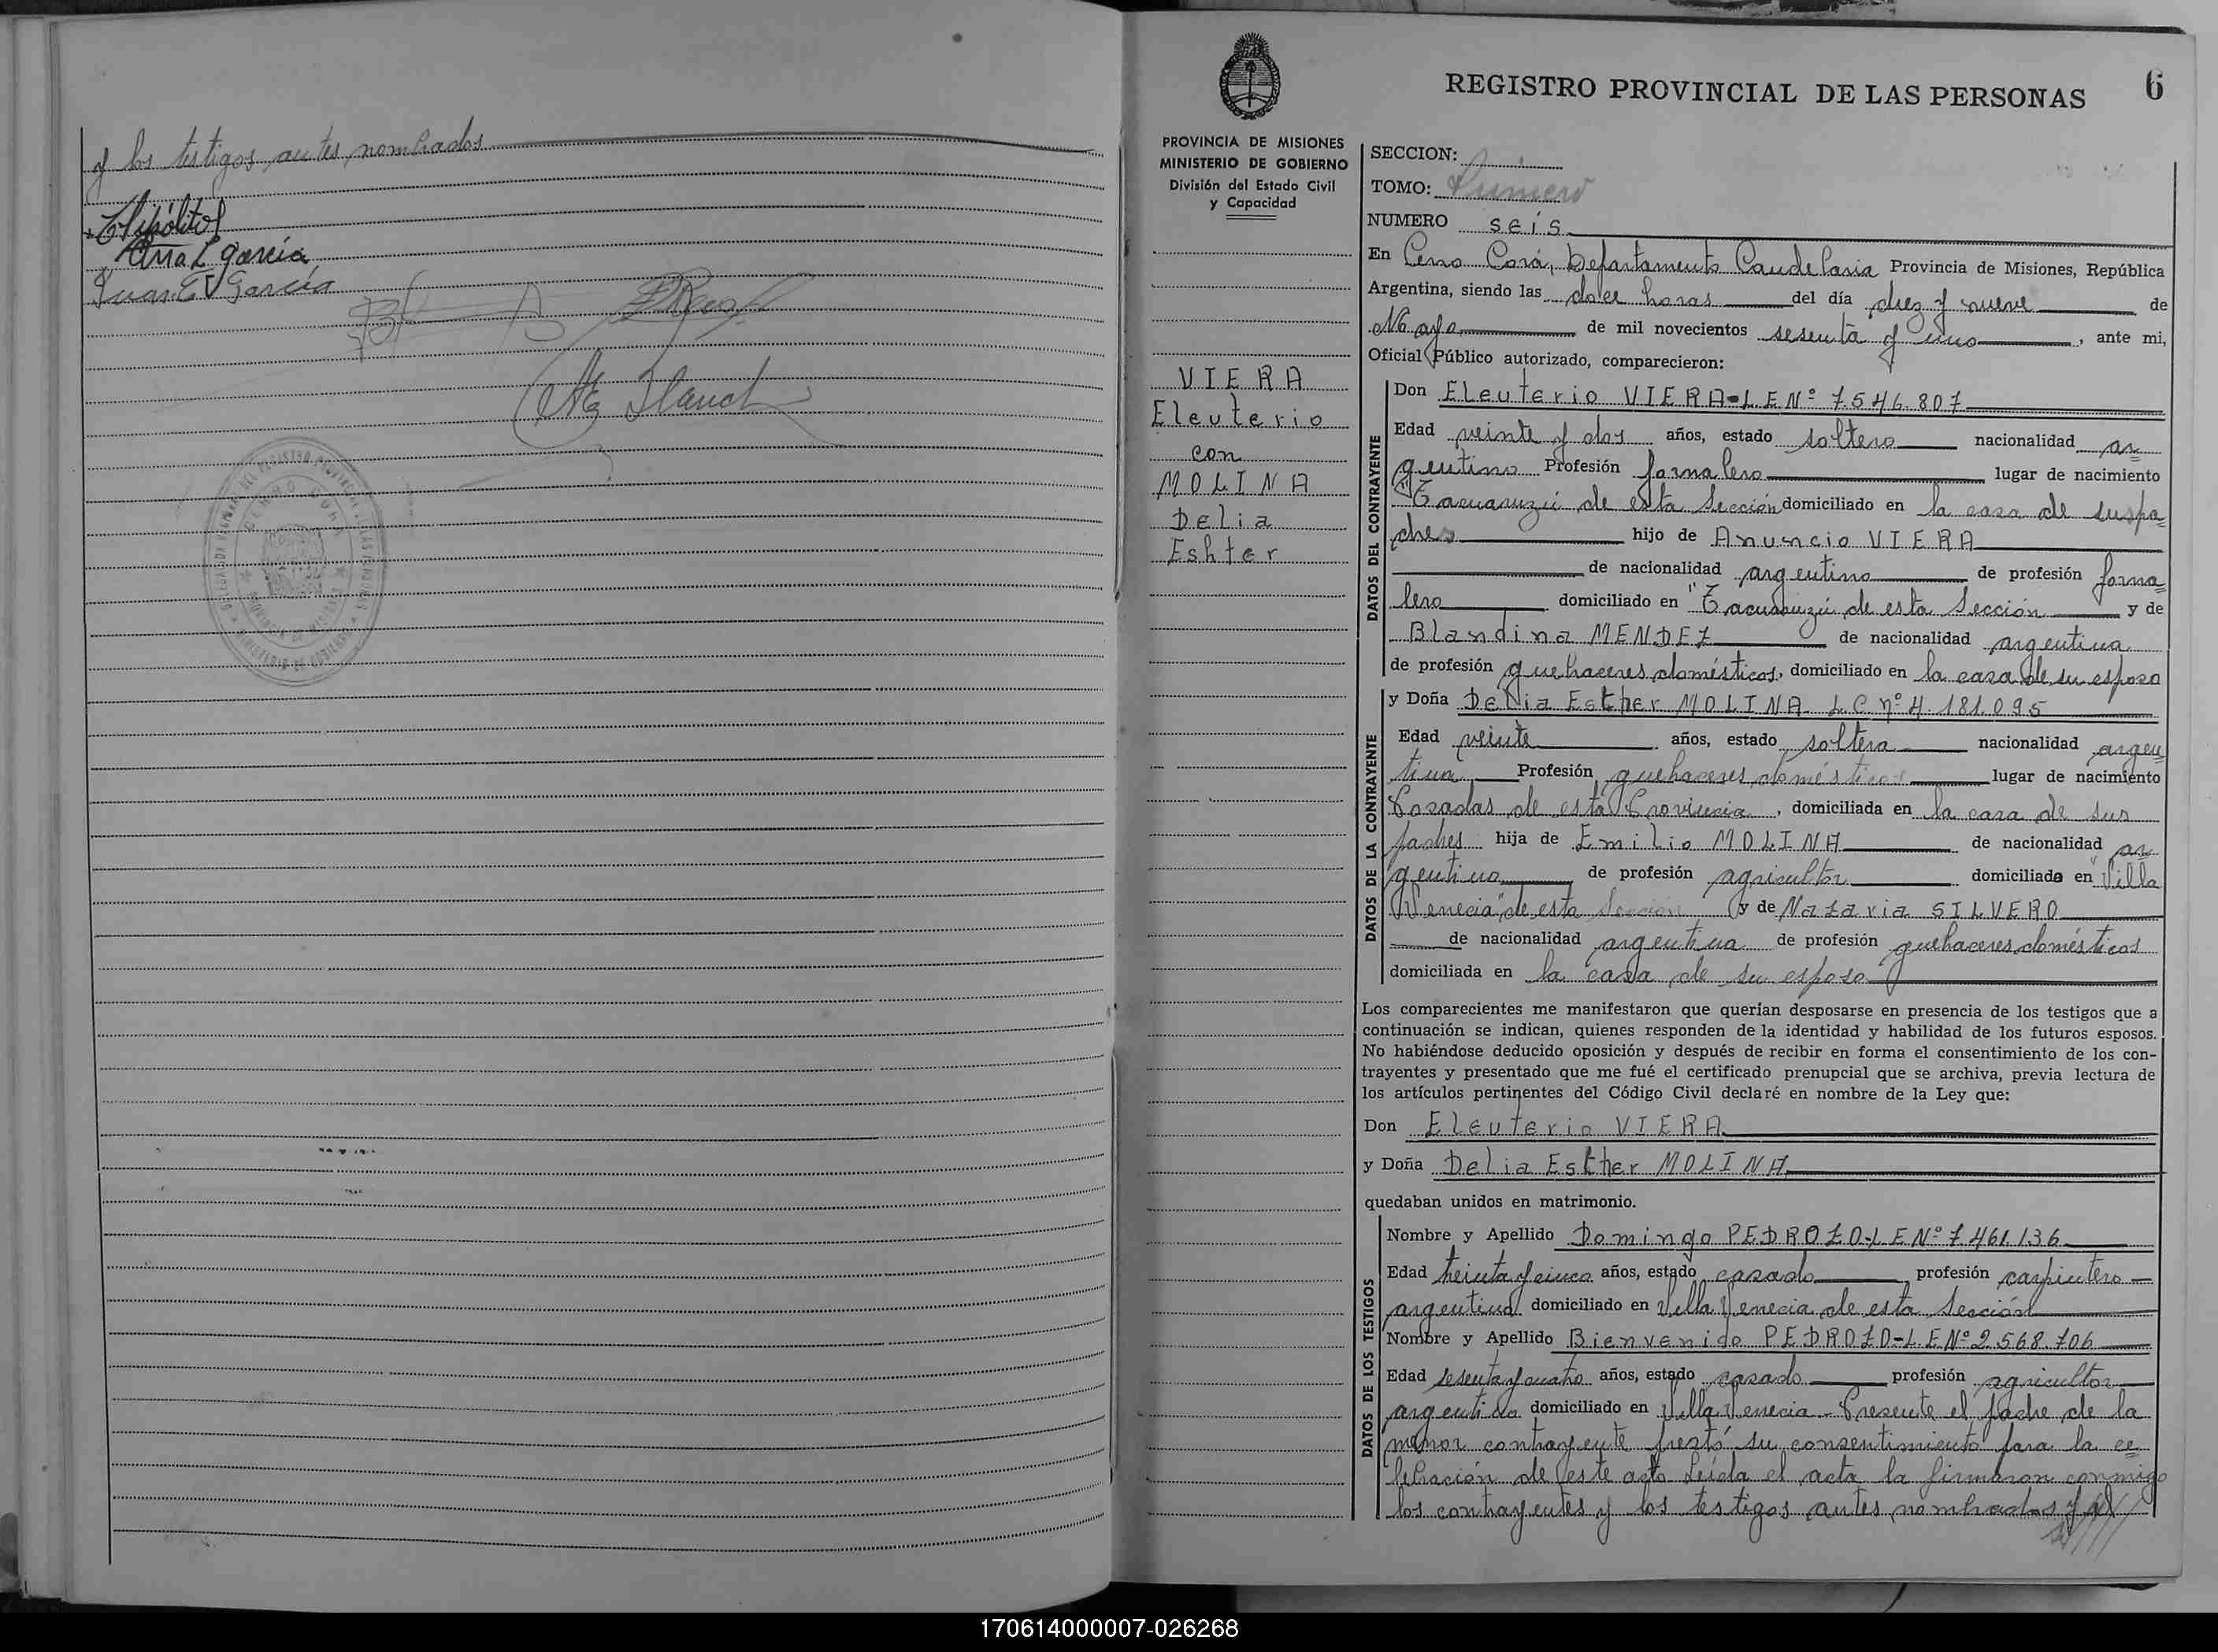 y los testigos antes nombrados
Hipólito
Ana L garcía
Juan E V García
REGISTRO PROVINCIAL DE LAS PERSONAS
6
PROVINCIA DE MISIONES
MINISTERIO DE GOBIERNO
División del Estado Civil
y Capacidad
VIERA
Eleuterio
con
MOLINA
Delia
Eshter
SECCION:
TOMO: Primero
NUMERO seis
En Cerro Corá, Departamento Candelaria Provincia de Misiones, República
Argentina, siendo las doce horas del día diez y nueve de
Mayo de mil novecientos sesenta y uno, ante mi,
Oficial Público autorizado, comparecieron:
DATOS DEL CONTRAYENTE
Don Eleuterio VIERA-L E Nº 7.546.807
Edad veinte y dos años, estado soltero nacionalidad ar
gentino Profesión jornalero lugar de nacimiento
"Tacuaruzú de esta Sección domiciliado en la casa de sus pa=
dres hijo de Anuncio VIERA
de nacionalidad argentino de profesión jorna=
lero domiciliado en "Tacuaruzú de esta Sección y de
Blandina MENDEZ de nacionalidad argentina
de profesión quehaceres domésticos, domiciliado en la casa de su esposo
DATOS DE LA CONTRAYENTE
y Doña Delia Esther MOLINA L C nº 4.181.095
Edad veinte años, estado soltera nacionalidad argen
tina Profesión quehaceres domésticos lugar de nacimiento
Posadas de esta Provincia, domiciliada en la casa de sus
padres hija de Emilio MOLINA de nacionalidad ar
gentino de profesión agricultor domiciliado en "Villa
Venecia" de esta Sección y de Nazaria SILVERO
de nacionalidad argentina de profesión quehaceres domésticos
domiciliada en la casa de su esposo
Los comparecientes me manifestaron que querían desposarse en presencia de los testigos que a
continuación se indican, quienes responden de la identidad y habilidad de los futuros esposos.
No habiéndose deducido oposición y después de recibir en forma el consentimiento de los con-
trayentes y presentado que me fué el certificado prenupcial que se archiva, previa lectura de
los artículos pertinentes del Código Civil declaré en nombre de la Ley que:
Don Eleuterio VIERA
y Doña Delia Esther MOLINA
quedaban unidos en matrimonio.
DATOS DE LOS TESTIGOS
Nombre y Apellido Domingo PEDROZO-L E Nº 7.461.136
Edad treinta y cinco años, estado casado profesión carpintero
argentino domiciliado en Villa Venecia de esta Sección
Nombre y Apellido Bienvenido PEDROZO-L.E Nº 2.568.706
Edad sesenta y cuatro años, estado casado profesión agricultor
argentino domiciliado en Villa Venecia - Presente el padre de la
menor contrayente prestó su consentimiento para la ce=
lebración de este acto Leída el acta la firmaron conmigo
los contrayentes y los testigos antes nombrados y
170614000007-026268